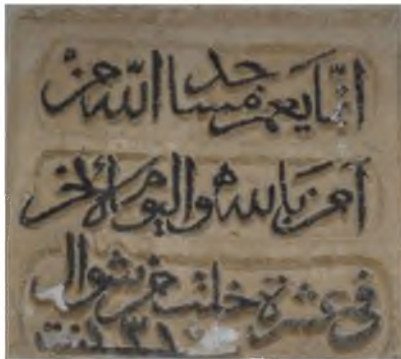 انما يعمر مساجد الله من
آمن بالله واليوم الآخر
في عشرة خلت من شوال
سنة